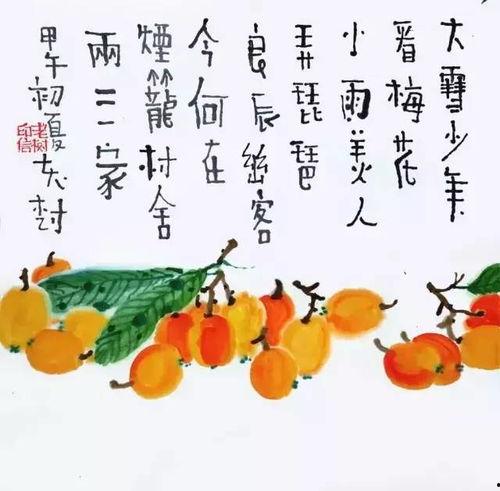 大雪少年
看梅花
小雨美人
弄琵琶
良辰幽客
今何在
煙籠村舍
兩三家
甲午初夏老树
老树印信